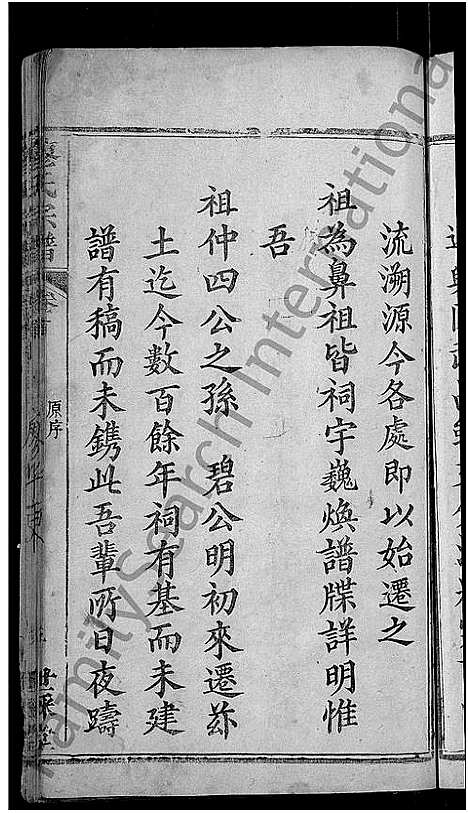 流溯源今各處即以始遷之
祖為鼻祖皆祠宇巍煥譜牒詳明惟
吾
祖仲四公之孫 碧公明初來遷茲
土迄今數百餘年祠有基而未建
譜有稿而未鐫此吾輩所日夜躊
氏宗譜
原序
FamilySearch International